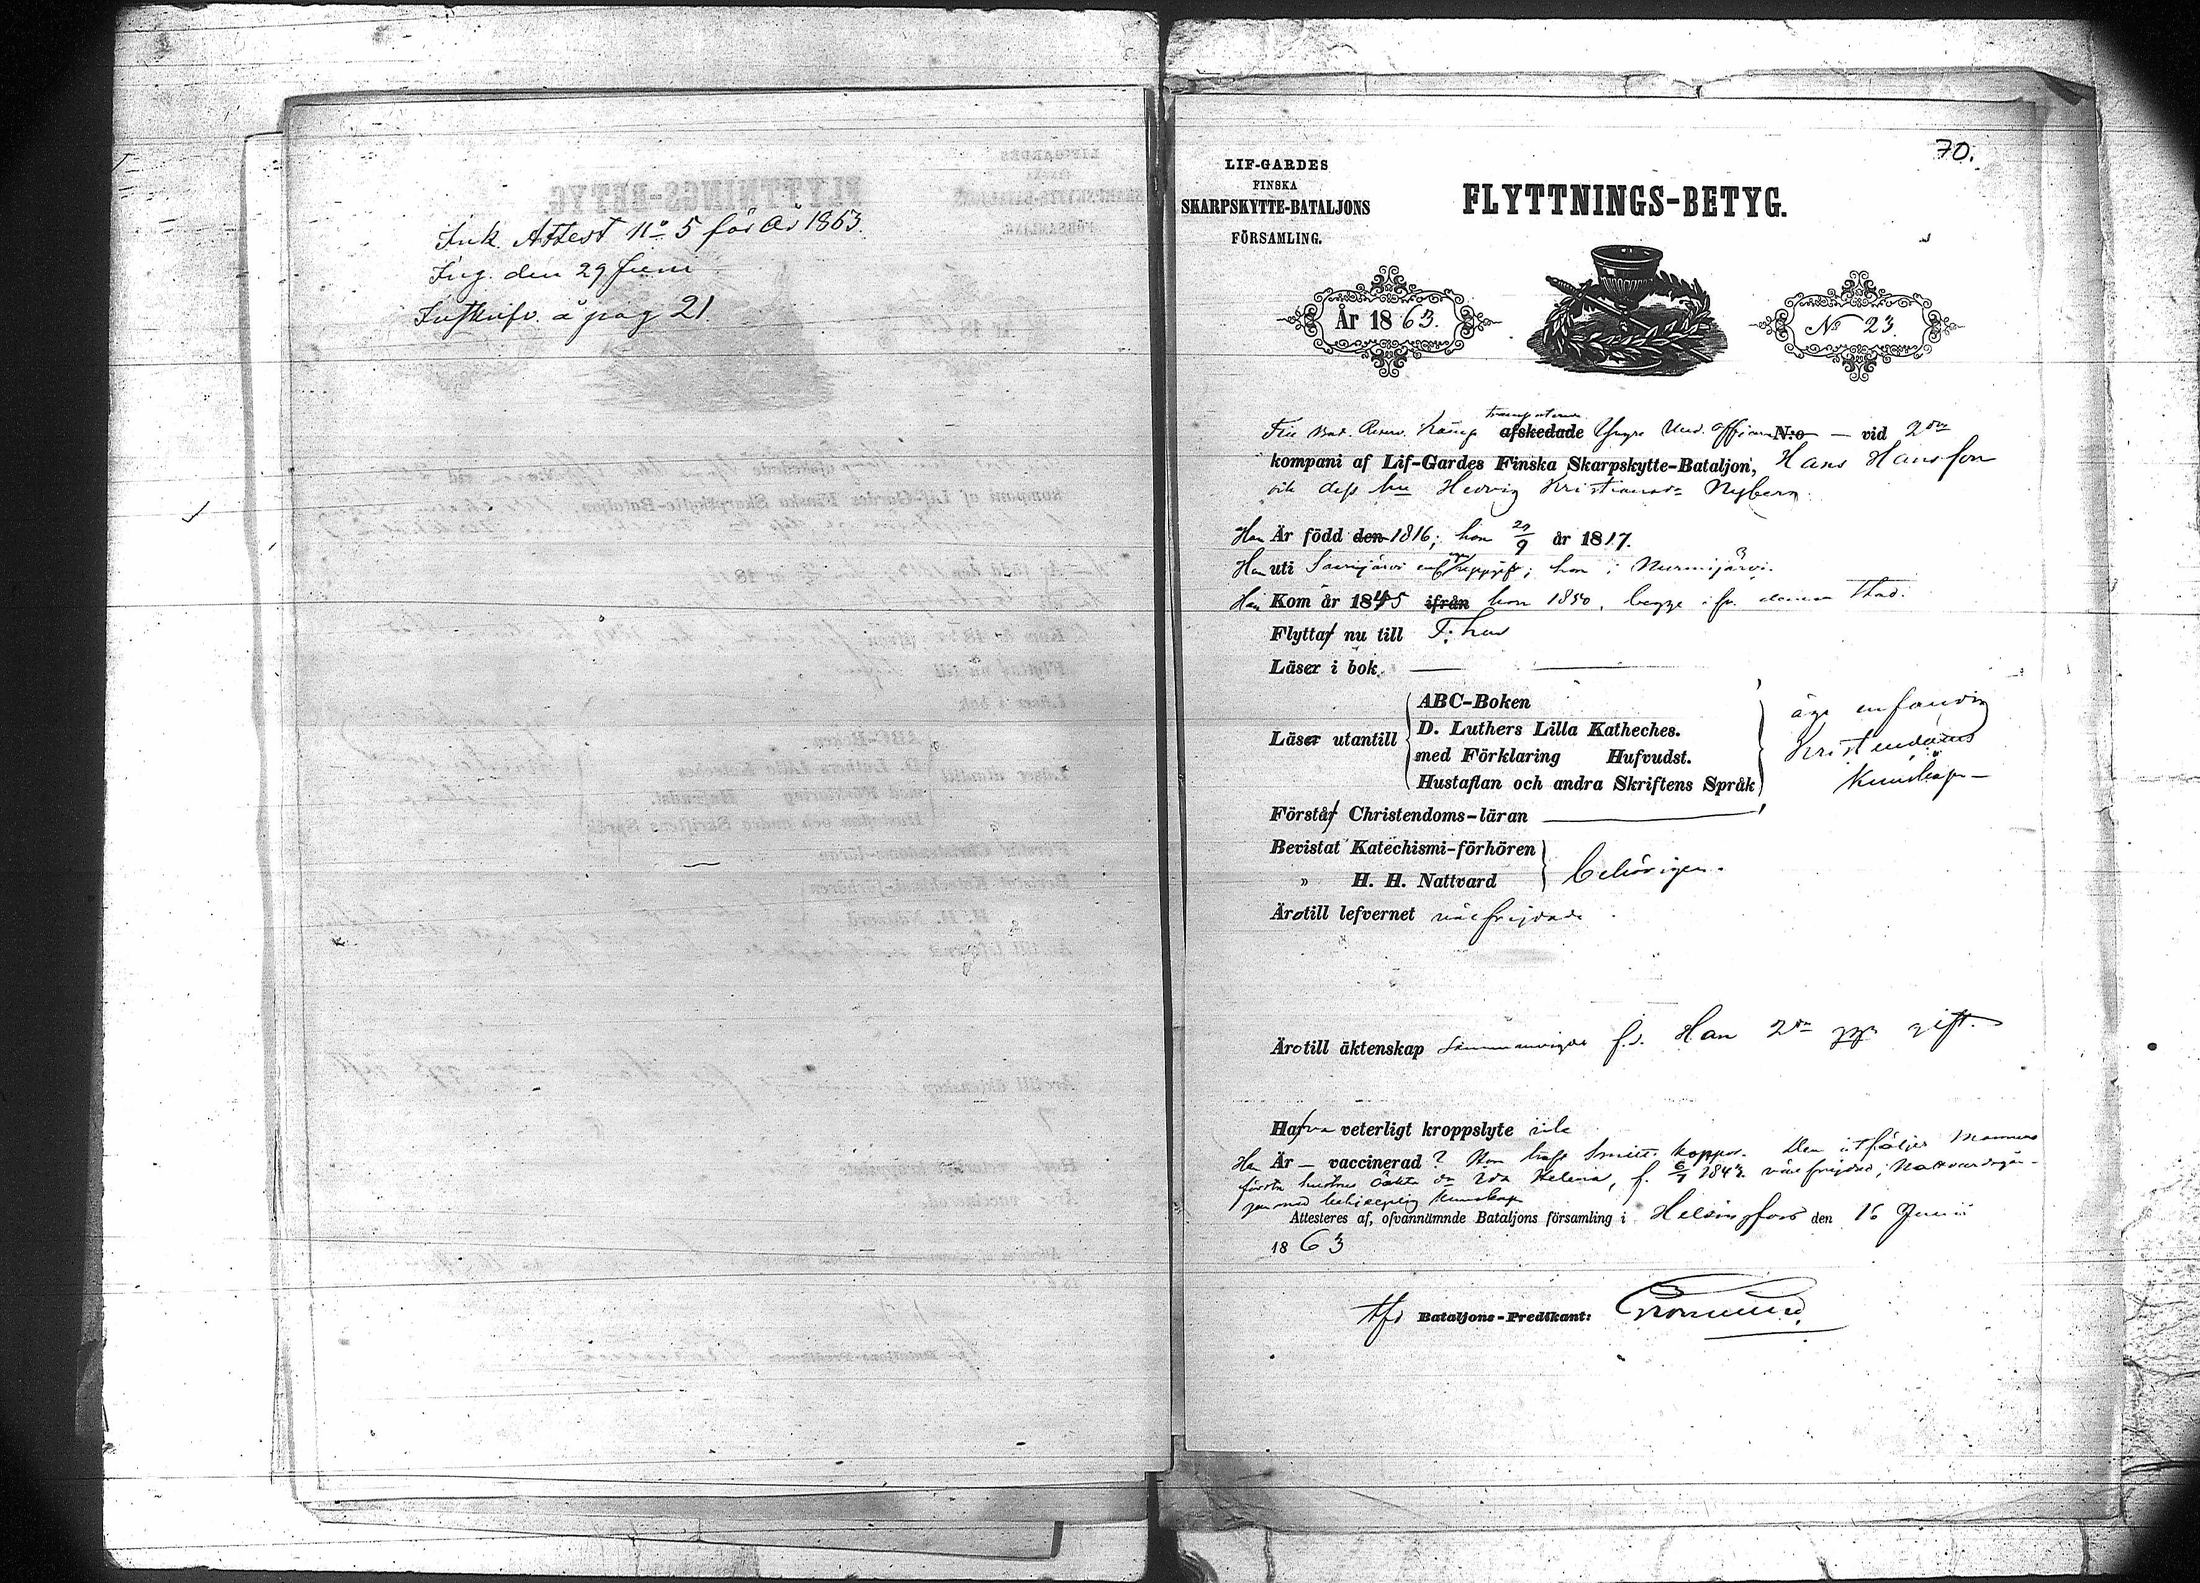 Ink. Attest No 5 för år 1863.
Ing. den 29 Juni
Inskrifv. å pag 21.
70.
LIF-GARDES
FINSKA
SKARPSKYTTE-BATALJONS
FÖRSAMLING.
FLYTTNINGS-BETYG.
År 1863.
No 23.
transporterade
Till Bat. Reserv. Komp afskedade Yngre Und. Officer N:o — vid 2dra
kompani af Lif-Gardes Finska Skarpskytte-Bataljon, Hans Hansson
och dess hu Hedvig Kristiansdr Nyberg.
Han Är född den 1816; hon 29/9 år 1817.
Han uti Saarijärvi enl uppgift; hon i Nurmijärvi.
Han Kom år 1845 ifrån hon 1850, begge ifr. denna stad.
Flytta nu till
Läser i bok.
Läser utantill
ABC-Boken
D. Luthers Lilla Katheches.
med Förklaring Hufvudst.
Hustaflan och andra Skriftens Språk
äga enfaldig
Kristendoms
Kunskap —
Förstå Christendoms-läran
Bevistat Katechismi-förhören
" H. H. Nattvard
behörigen.
Äro till lefvernet välfrejdade
Äro till äktenskap sammanvigde f.d. Han 2dra ggn gift.
Hafva veterligt kroppslyte icke
Han Är — vaccinerad? Hon haft Smitt. koppor. Den åtföljer Mannens
första hustrus dr Ida Helena, f. 6/7 1843. välfrejdad; Nattvardsgån-
gen med kunskap
Attesteres af, ofvannämnde Bataljons församling i Helsingfors den 16 Junii
1863
Bataljons-Predikant: